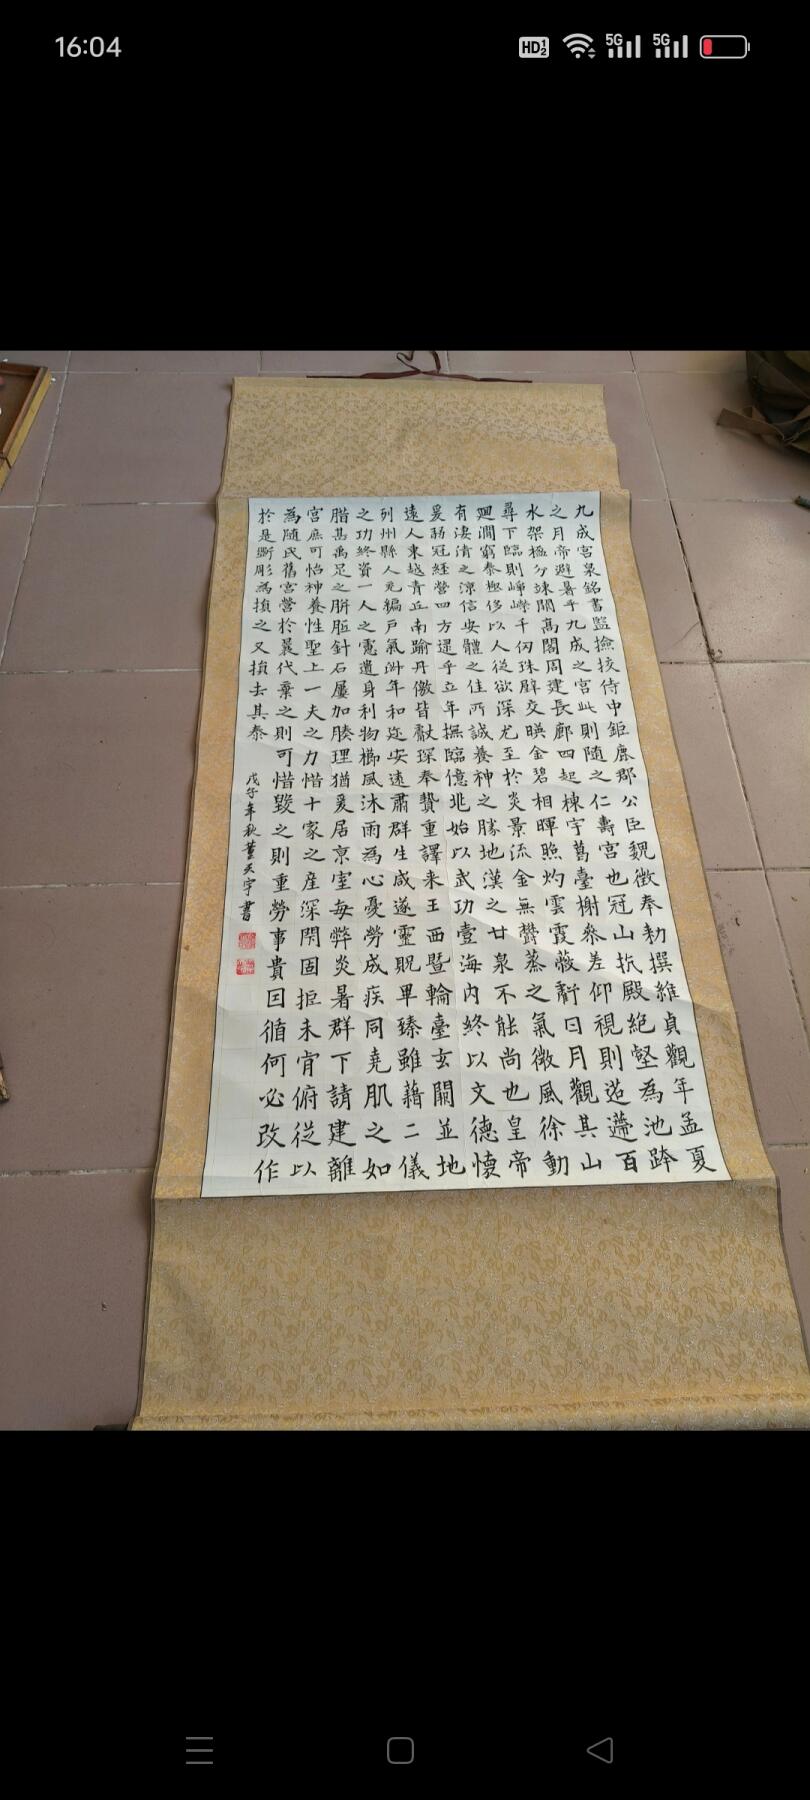 16:04
HD 5G 5G
九成宮泉銘書監撿挍侍中鉅鹿郡公臣魏徵奉勑撰維貞觀年孟夏
之月帝避暑乎九成之宮此則隨之仁壽宮也冠山抗殿絕壑為池跨
水架楹分竦闕高閣周建長廊四起棟宇葛臺榭叅差仰視則迢遰百
尋下臨則崢嶸千仞珠壁交暎金碧相暉照灼雲霞蔽虧日月觀其山
廻澗窮泰極侈以人從欲深尤至於炎景流金無鬱蒸之氣微風徐動
有淒清之涼信安體之佳所誠養神之勝地漢之甘泉不能尚也皇帝
爰弱冠經營四方逮乎立年撫臨億兆始以武功壹海內終以文德懷
遠人東越青丘南踰丹儌皆獻琛奉贄重譯来王西暨輪臺玄闕並地
列州縣人充編戶氣淑年和迩安遠肅群生咸遂靈貺畢臻雖藉二儀
之功終資一人之慮遺身利物櫛風沐雨為心憂勞成疾同堯肌之如
腊甚禹足之胼胝針石屢加腠理猶爰居京室每弊炎暑群下請建離
宮庶可怡神養性聖上一夫之力惜十家之產深閇固拒未肯俯從以
為隨氏舊宮營於曩代棄之則可惜毀之則重勞事貴因循何必改作
於是斲彫為損之又損去其泰
戊子年秋董天宇書